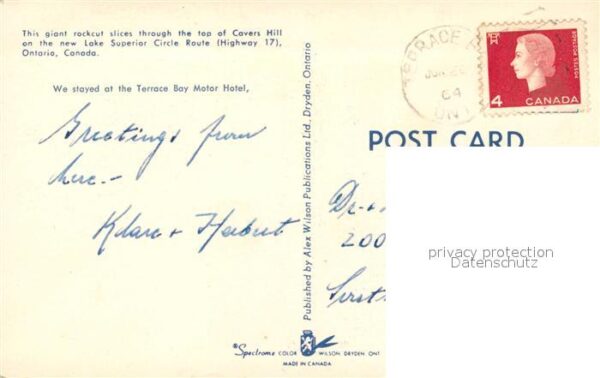 This giant rockcut slices through the top of Cavers Hill
on the new Lake Superior Circle Route (Highway 17),
Ontario, Canada.
We stayed at the Terrace Bay Motor Hotel,
Greetings from
here.-
Klara + Herbert
Published by Alex Wilson Publications Ltd., Dryden, Ontario
®Spectrome COLOR WILSON, DRYDEN, ONT.
MADE IN CANADA
64
ONT
4 CANADA
POSTES POSTAGE
POST CARD
Dr. +
200
privacy protection
Datenschutz